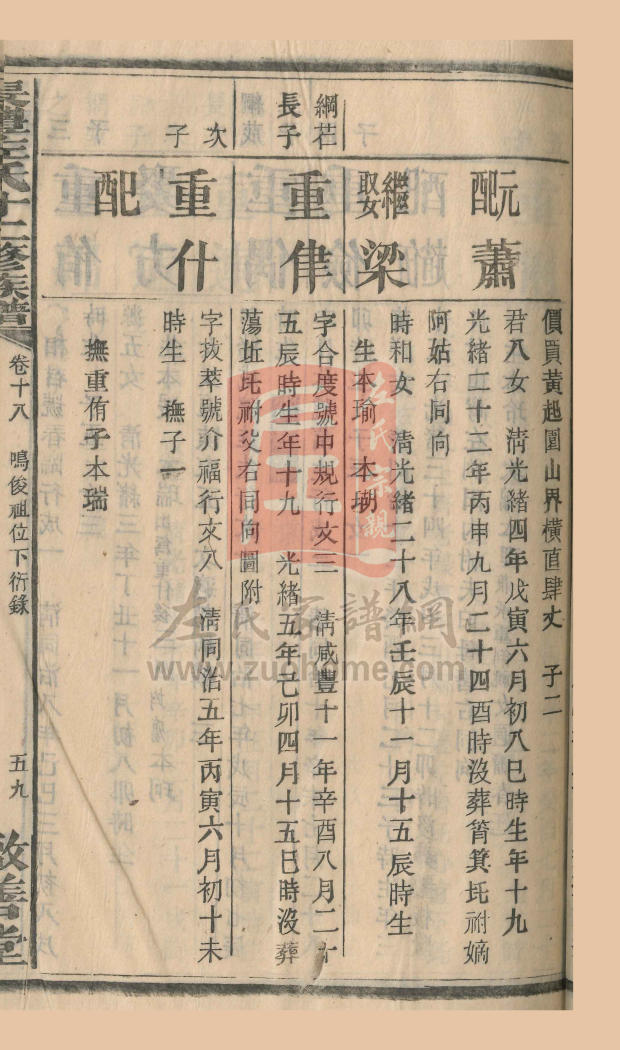 價買黃趄園山界橫直肆丈 子二
元配蕭
君八女 淸光緒四年戊寅六月初八巳時生年十九
光緒二十二年丙申九月二十四酉時沒葬箐箕坵祔嫡
阿姑右同向
繼娶梁
時和女 淸光緒二十八年壬辰十一月十五辰時生
生本瑜 本瑚
綱茫長子
重律
字合度號中規行文三 淸咸豐十一年辛酉八月二十
五辰時生年十九 光緒五年己卯四月十五巳時沒葬
蕩坵坵祔父右同向圖附
次子
重什
字拔萃號介福行文八 淸同治五年丙寅六月初十未
時生 撫子一
配
撫重侑子本瑞
左氏十二修族譜
卷十八 鳴俊祖位下衍錄
五九
敦善堂
左氏宗親
左氏家譜網
www.zuohome.com